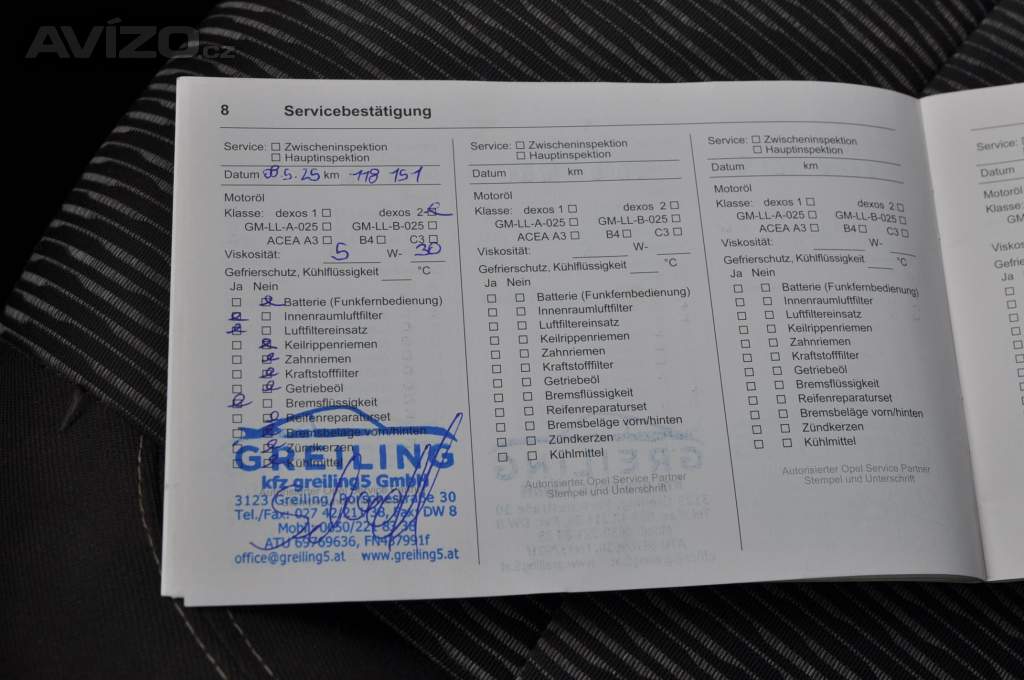 AVÍZO.cz
8 Servicebestätigung
Service: ☐ Zwischeninspektion
☐ Hauptinspektion
Datum 5.25 km 118 151
Motoröl
Klasse: dexos 1 ☐ dexos 2
GM-LL-A-025 ☐ GM-LL-B-025 ☐
ACEA A3 ☐ B4 ☐ C3 ☐
Viskosität: 5 W- 30
Gefrierschutz, Kühlflüssigkeit ____ °C
Ja Nein
Batterie (Funkfernbedienung)
Innenraumluftfilter
Luftfiltereinsatz
Keilrippenriemen
Zahnriemen
Kraftstofffilter
Getriebeöl
Bremsflüssigkeit
Reifenreparaturset
Bremsbeläge vorn/hinten
Zündkerzen
Kühlmittel
GREILING
kfz greiling5 GmbH
3123 Greiling, Porschestraße 30
Tel./Fax: 027 42/211 38, Fax: DW 8
Mobil: 0650/221 83 38
ATU 69769636, FN437991f
office@greiling5.at www.greiling5.at
Service: ☐ Zwischeninspektion
☐ Hauptinspektion
Datum km
Motoröl
Klasse: dexos 1 ☐ dexos 2 ☐
GM-LL-A-025 ☐ GM-LL-B-025 ☐
ACEA A3 ☐ B4 ☐ C3 ☐
Viskosität: ____ W- ____
Gefrierschutz, Kühlflüssigkeit ____ °C
Ja Nein
☐ ☐ Batterie (Funkfernbedienung)
☐ ☐ Innenraumluftfilter
☐ ☐ Luftfiltereinsatz
☐ ☐ Keilrippenriemen
☐ ☐ Zahnriemen
☐ ☐ Kraftstofffilter
☐ ☐ Getriebeöl
☐ ☐ Bremsflüssigkeit
☐ ☐ Reifenreparaturset
☐ ☐ Bremsbeläge vorn/hinten
☐ ☐ Zündkerzen
☐ ☐ Kühlmittel
Autorisierter Opel Service Partner
Stempel und Unterschrift
Service: ☐ Zwischeninspektion
☐ Hauptinspektion
Datum km
Motoröl
Klasse: dexos 1 ☐ dexos 2 ☐
GM-LL-A-025 ☐ GM-LL-B-025 ☐
ACEA A3 ☐ B4 ☐ C3 ☐
Viskosität: ____ W- ____
Gefrierschutz, Kühlflüssigkeit ____ °C
Ja Nein
☐ ☐ Batterie (Funkfernbedienung)
☐ ☐ Innenraumluftfilter
☐ ☐ Luftfiltereinsatz
☐ ☐ Keilrippenriemen
☐ ☐ Zahnriemen
☐ ☐ Kraftstofffilter
☐ ☐ Getriebeöl
☐ ☐ Bremsflüssigkeit
☐ ☐ Reifenreparaturset
☐ ☐ Bremsbeläge vorn/hinten
☐ ☐ Zündkerzen
☐ ☐ Kühlmittel
Autorisierter Opel Service Partner
Stempel und Unterschrift
Service:
Datum
Motoröl
Ja